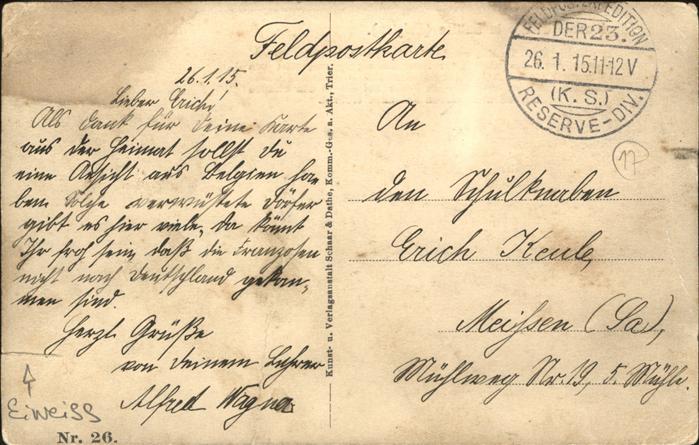 Feldpostkarte
FELDPOSTEXPEDITION
DER 23.
26. 1. 15. 11-12 V
(K. S.)
RESERVE-DIV.
17
26.1.15.
Lieber Erich!
Als Dank für Deine Karte
aus der Heimat sollst du
eine Ansicht aus Belgien ha-
ben. Solche verwüstete Dörfer
gibt es hier viele, da könnt
Ihr froh sein, daß die Franzosen
nicht nach Deutschland gekom-
men sind.
Herzl. Grüße
von Deinem Lehrer
Alfred Wagner
Eiweiss
Nr. 26.
Kunst- u. Verlagsanstalt Schaar & Dathe, Komm.-Ges. a. Akt., Trier.
An
den Schulknaben
Erich Keule,
Meissen (Sa),
Mühlweg Nr. 19, 5. Mühle.